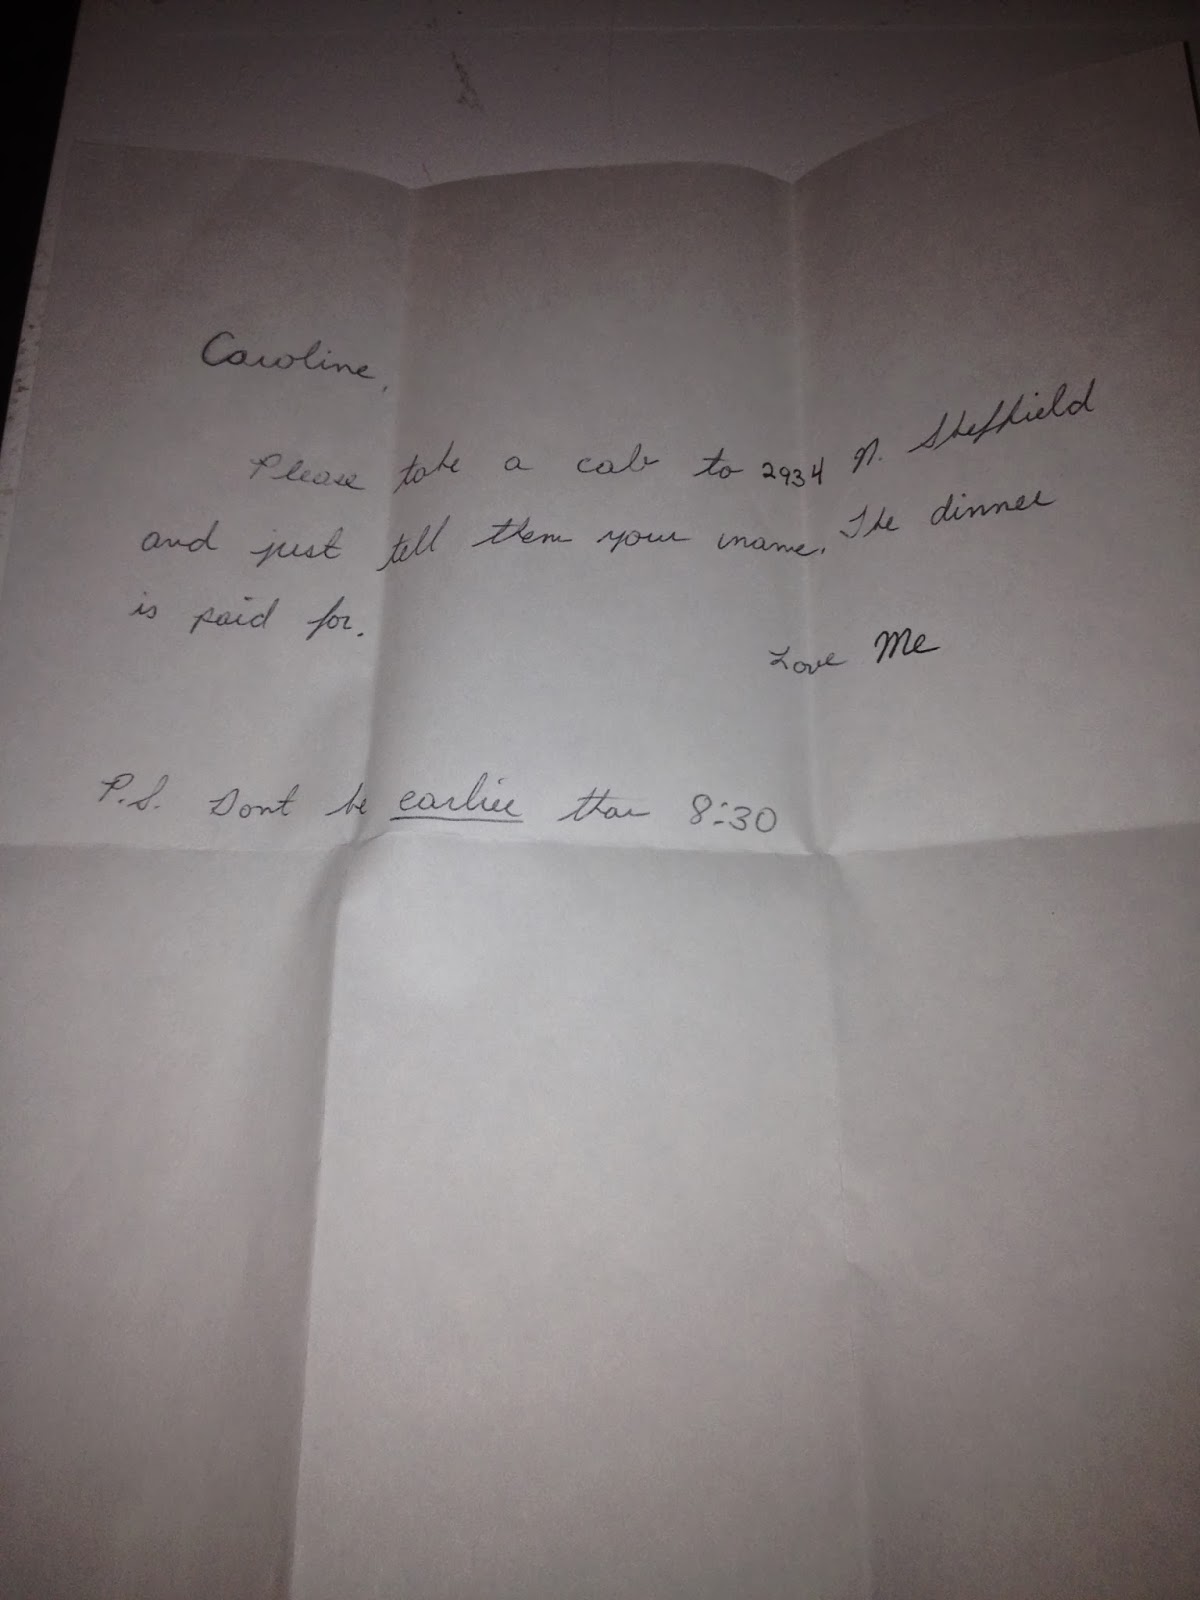 Caroline,
Please take a cab to 2934 N. Sheffield
and just tell them your name. The dinner
is paid for.
Love Me
P.S. Dont be earlier than 8:30